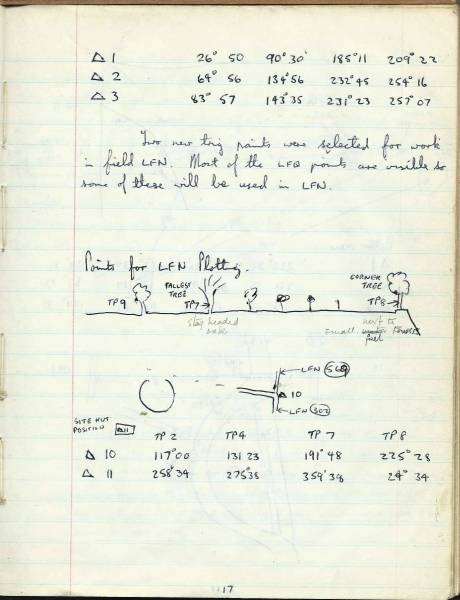 △ 1 26° 50 90° 30' 185°11 209° 22
△ 2 64° 56 134°56 232°45 254° 16
△ 3 83° 57 143°35 231°23 257° 07
Two new trig points were selected for work
in field LFN. Most of the LFQ points are visible so
some of these will be used in LFN.
Points for LFN Plotting.
CORNER
TREE
TALLEST
TREE
TP9 TP7 TP8
stag headed
oak
next to
small
LFN
△ 10
LFN
SITE HUT
POSITION △11
TP 2 TP4 TP 7 TP 8
△ 10 117°00 131 23 191°48 225°28
△ 11 258°34 275°38 359°38 24° 34
17